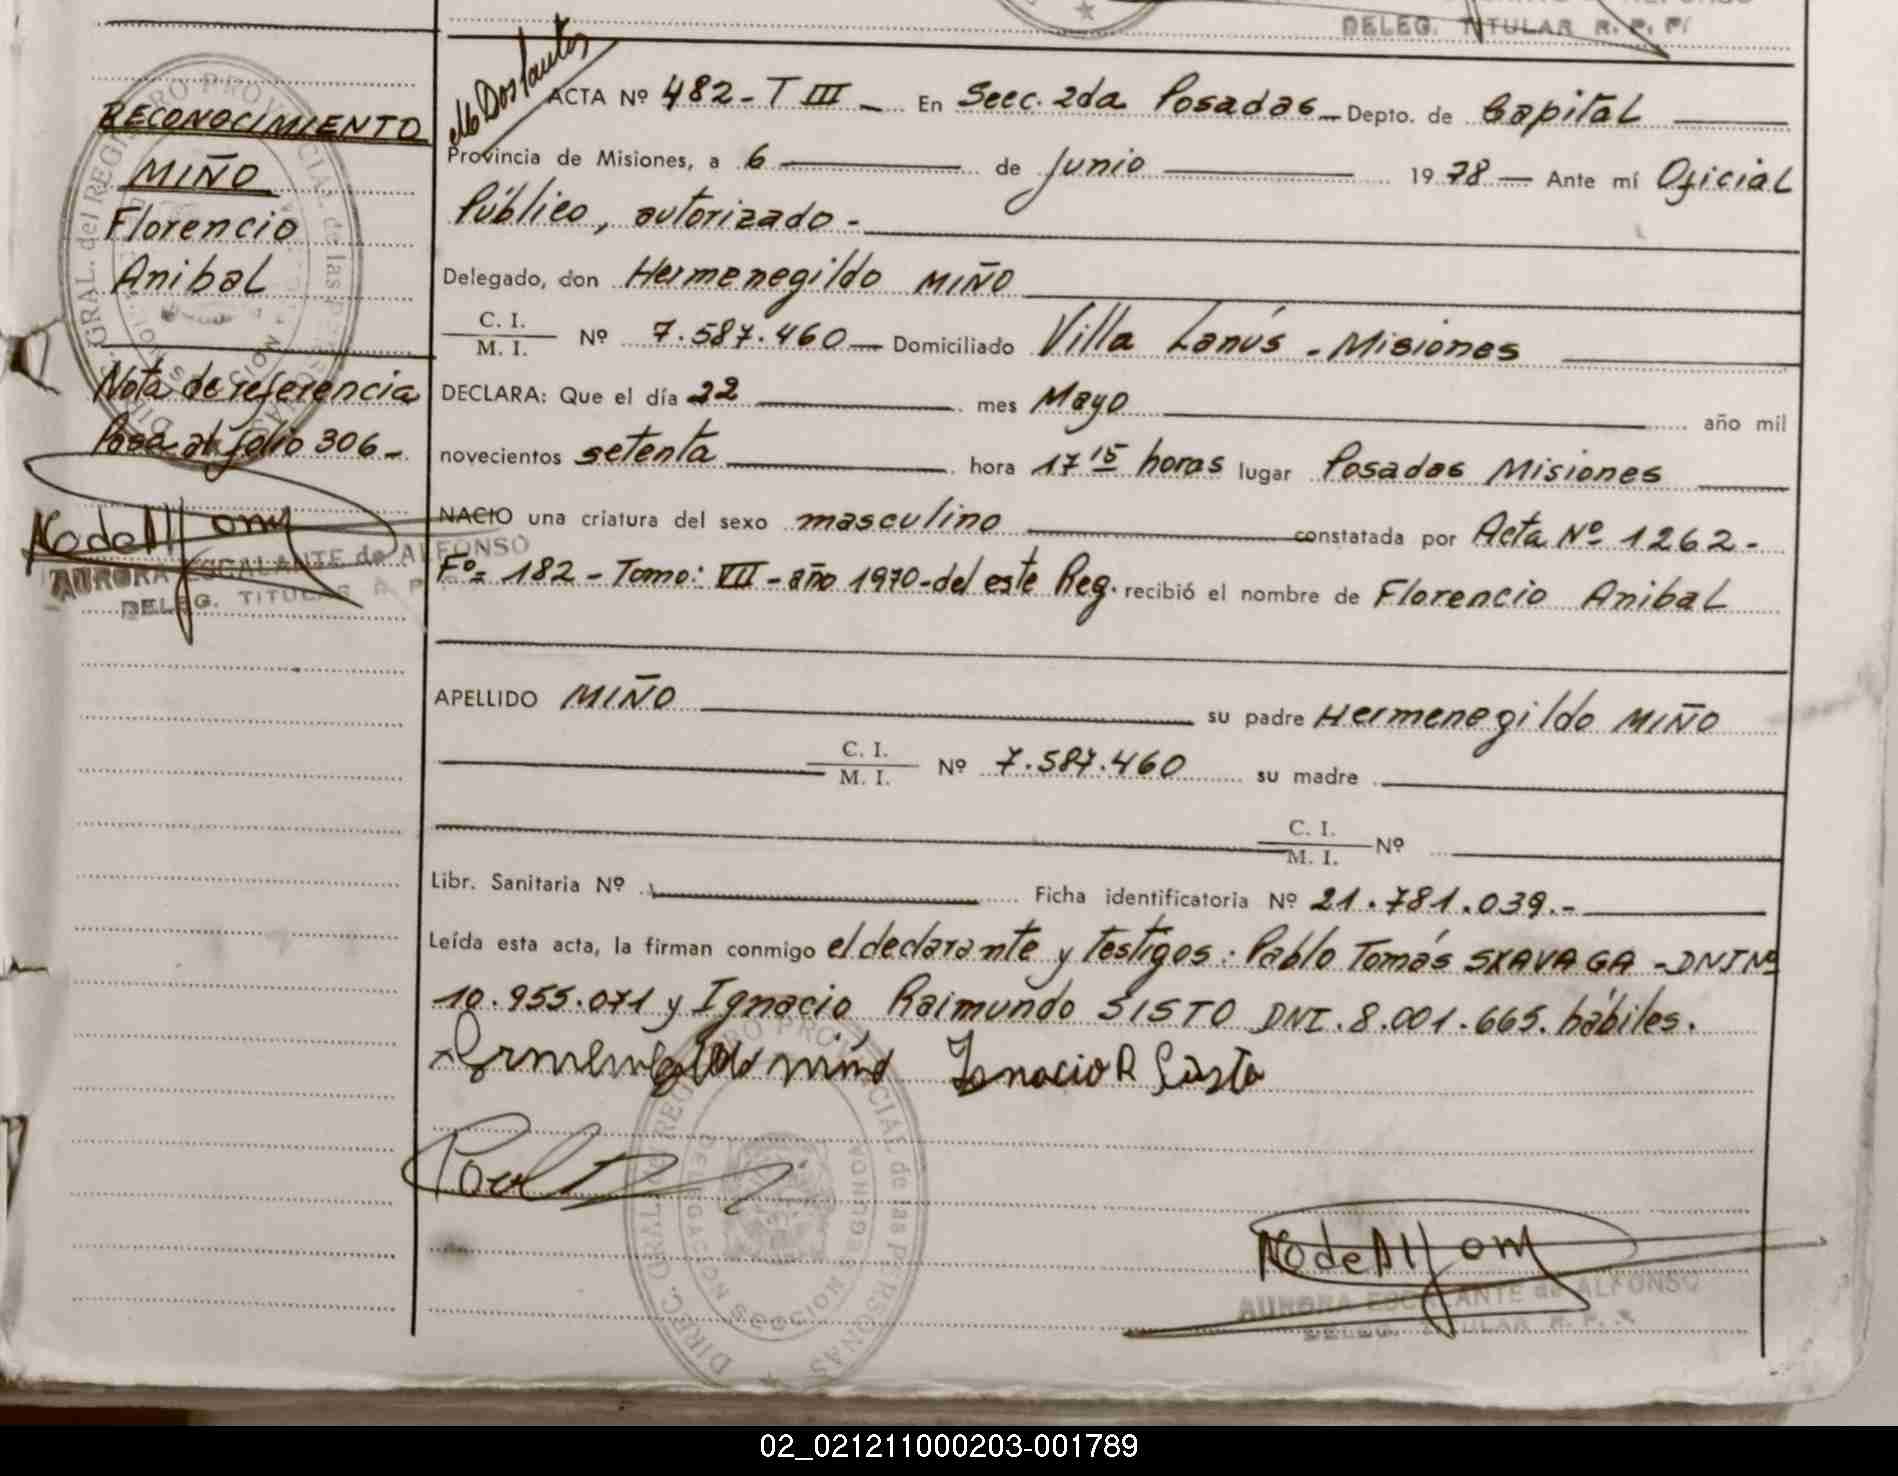 DELEG. TITULAR R. P. P/
ACTA Nº 482 - T III - En Secc. 2da Posadas - Depto. de Capital
Provincia de Misiones, a 6 de Junio 1978 - Ante mí Oficial
Público, autorizado -
Delegado, don Hermenegildo MIÑO
C. I.
M. I. Nº 7.587.460 - Domiciliado Villa Lanús - Misiones
DECLARA: Que el día 22 mes Mayo año mil
novecientos setenta hora 17 15 horas lugar Posadas Misiones
NACIO una criatura del sexo masculino constatada por Acta Nº 1262 -
Fº= 182 - Tomo: VII - año 1970 - del este Reg. recibió el nombre de Florencio Anibal
APELLIDO MIÑO su padre Hermenegildo MIÑO
C. I.
M. I. Nº 7.587.460 su madre
C. I.
M. I. Nº
Libr. Sanitaria Nº Ficha identificatoria Nº 21.781.039.-
Leída esta acta, la firman conmigo el declarante y testigos: Pablo Tomás SKAVAGA - DNI Nº
10.955.071 y Ignacio Raimundo SISTO DNI. 8.001.665. hábiles.
Ignacio R Sisto
AURORA ESCALANTE de ALFONSO
DELEG. TITULAR R. P.
RECONOCIMIENTO
MIÑO
Florencio
Anibal
Nota de referencia
Pasa al folio 306 -
AURORA ESCALANTE de ALFONSO
DELEG. TITULAR R. P.
02_021211000203-001789